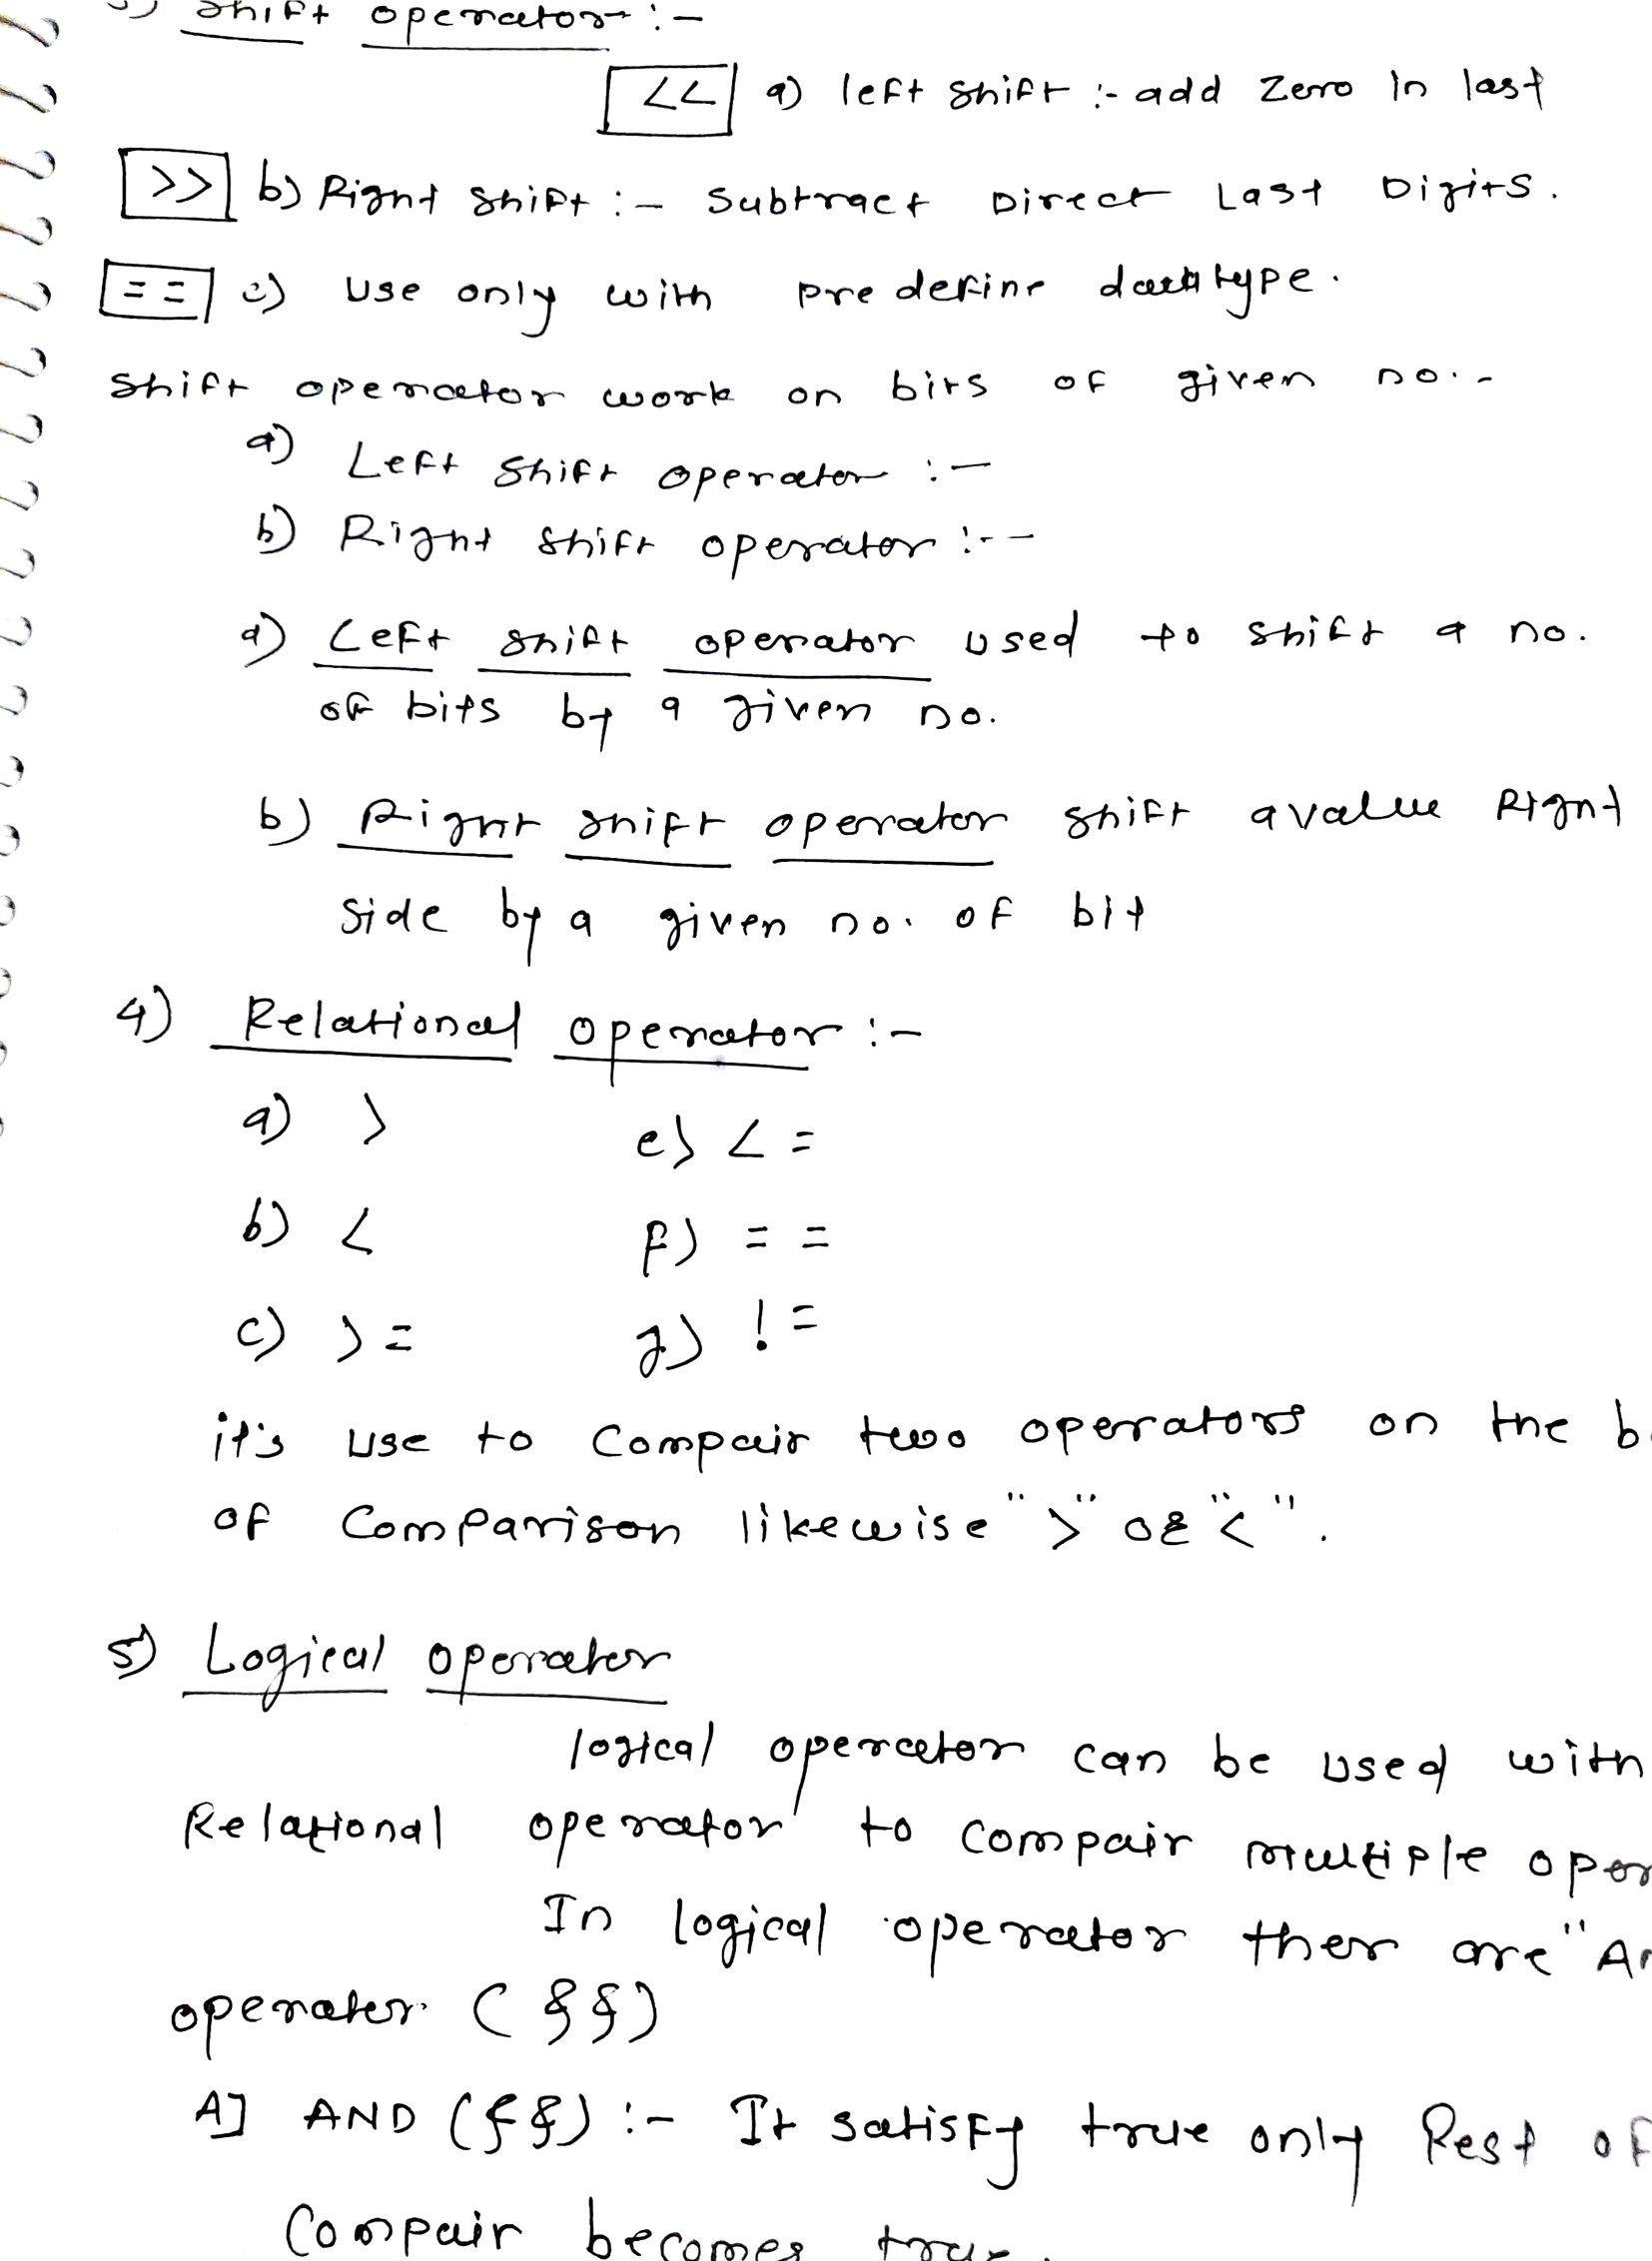 Shift operator :-
<< a) left shift :- add zero in last
>> b) Right shift :- Subtract Direct Last Digits.
== c) Use only with predefine datatype.
Shift operator work on bits of given no.-
a) Left Shift operator :-
b) Right shift operator :--
a) Left shift operator used to shift a no.
of bits by a given no.
b) Right shift operator shift a value Right
side by a given no. of bit
4) Relational operator :-
a) > e) <=
b) < f) ==
c) >= g) !=
it's use to Compair two operators on the b
of Comparison likewise ">" or "<".
5) Logical operator
logical operator can be used with
Relational operator to compair multiple oper
In logical operator ther are "An
operator (&&)
A] AND (&&) :- It satisfy true only Rest of
Compair becomes true.